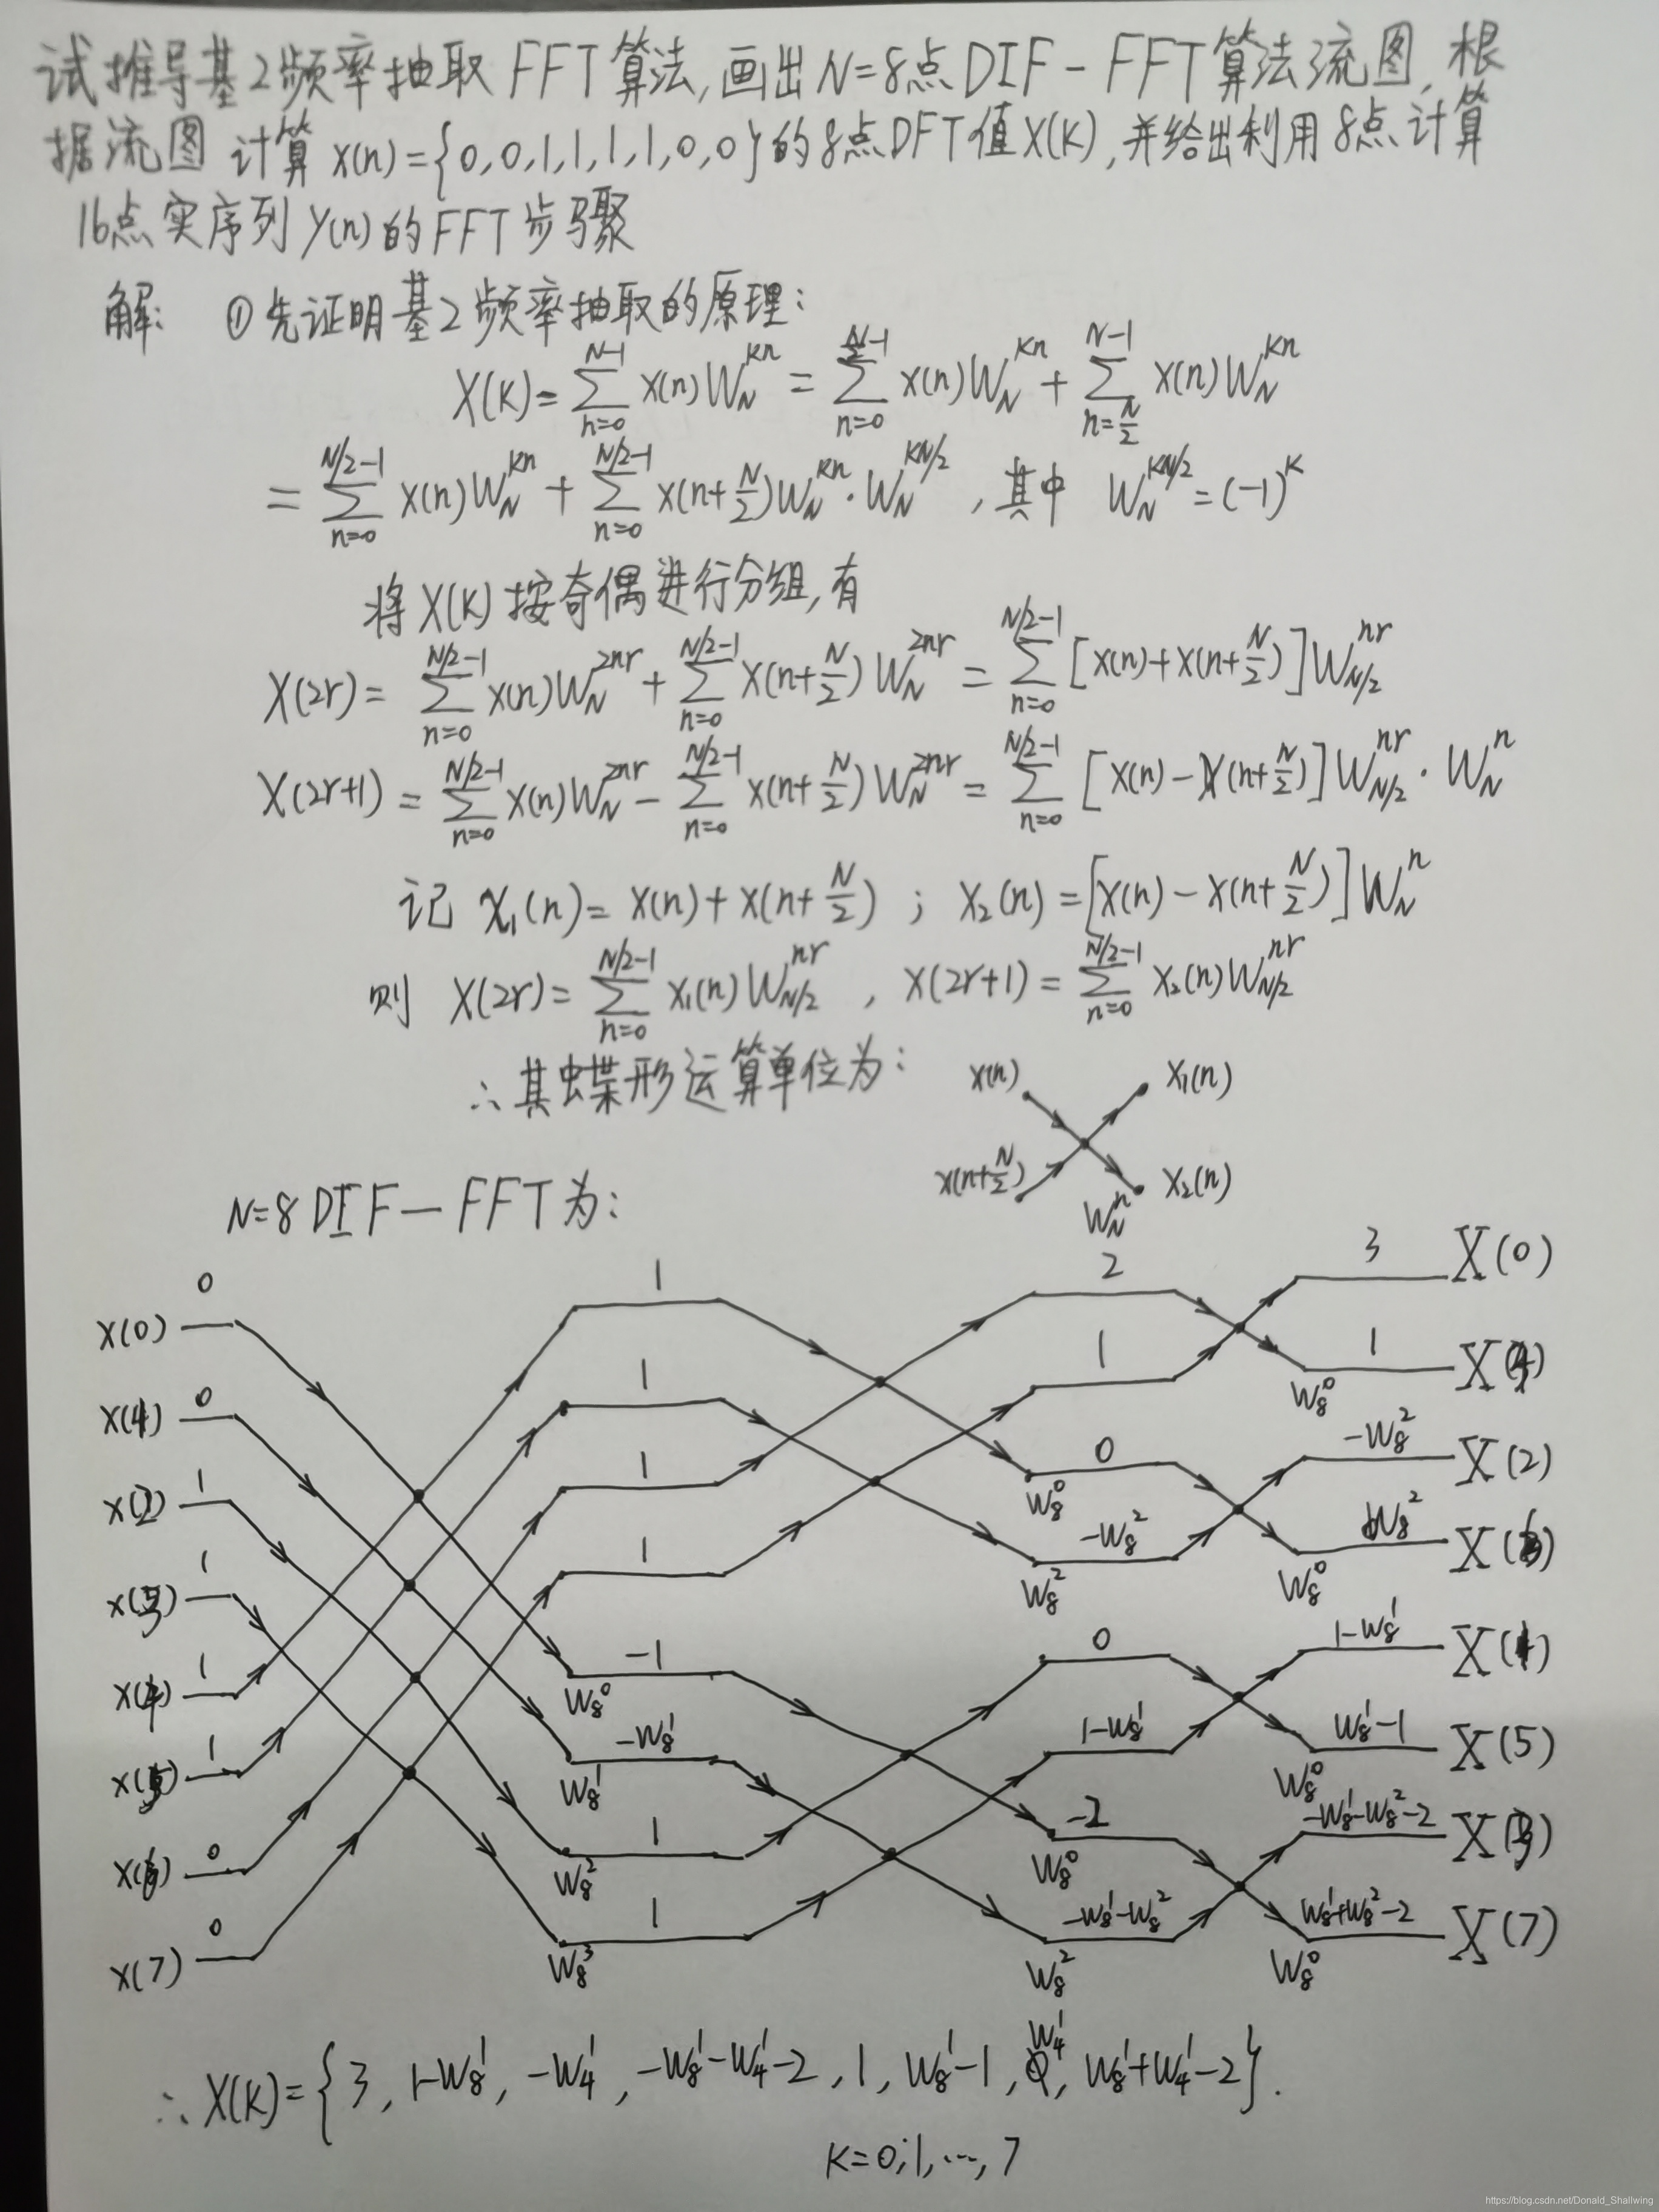 试推导基2频率抽取FFT算法,画出N=8点DIF-FFT算法流图,根
据流图 计算 x(n)={0,0,1,1,1,1,0,0}的8点DFT值X(K),并给出利用8点计算
16点实序列y(n)的FFT步骤
解: ①先证明基2频率抽取的原理:
X(K)=∑_{n=0}^{N-1} x(n)W_N^{kn} = ∑_{n=0}^{N/2-1} x(n)W_N^{kn} + ∑_{n=N/2}^{N-1} x(n)W_N^{kn}
= ∑_{n=0}^{N/2-1} x(n)W_N^{kn} + ∑_{n=0}^{N/2-1} x(n+N/2)W_N^{kn}·W_N^{kN/2} ,其中 W_N^{kN/2}=(-1)^k
将X(K)按奇偶进行分组,有
X(2r)= ∑_{n=0}^{N/2-1} x(n)W_N^{2nr} + ∑_{n=0}^{N/2-1} x(n+N/2)W_N^{2nr} = ∑_{n=0}^{N/2-1} [x(n)+x(n+N/2)]W_{N/2}^{nr}
X(2r+1)= ∑_{n=0}^{N/2-1} x(n)W_N^{2nr} - ∑_{n=0}^{N/2-1} x(n+N/2)W_N^{2nr} = ∑_{n=0}^{N/2-1} [x(n)-x(n+N/2)]W_{N/2}^{nr}·W_N^n
记 x₁(n)= x(n)+x(n+N/2) ; x₂(n)=[x(n)-x(n+N/2)]W_N^n
则 X(2r)= ∑_{n=0}^{N/2-1} x₁(n)W_{N/2}^{nr} , X(2r+1)= ∑_{n=0}^{N/2-1} x₂(n)W_{N/2}^{nr}
∴其蝶形运算单位为:
x(n) x₁(n)
x(n+N/2) W_N^n x₂(n)
N=8 DIF-FFT为:
x(0) 0 1 2 3 X(0)
0 1 1 1 W_8^0 X(4)
1 1 0 W_8^0 -W_8^2 X(2)
1 1 -W_8^2 W_8^2 W_8^2 W_8^0
1 -1 W_8^0 0 1-W_8^1
1 -W_8^1 W_8^1 1-W_8^1 W_8^1-1 W_8^0 X(5)
0 1 W_8^2 -2 W_8^0 -W_8^1-W_8^2-2
x(7) 0 1 W_8^3 -W_8^1-W_8^2 W_8^2 W_8^1+W_8^2-2 W_8^0 X(7)
∴X(K)={3, 1-W_8^1, -W_4^1, -W_8^1-W_4^1-2, 1, W_8^1-1, W_4^1, W_8^1+W_4^1-2}.
K=0,1,…,7
https://blog.csdn.net/Donald_Shallwing